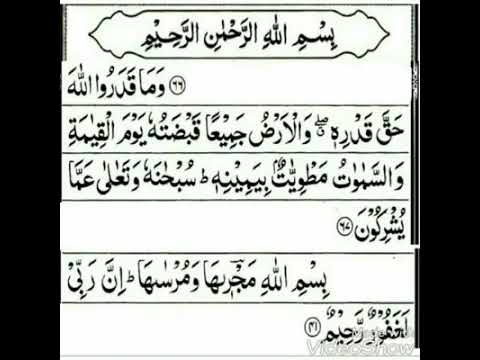 بِسْمِ اللهِ الرَّحْمٰنِ الرَّحِيْمِ
﴿٦٦﴾ وَمَا قَدَرُوا اللهَ
حَقَّ قَدْرِهٖ ۖ وَالْاَرْضُ جَمِيْعًا قَبْضَتُهٗ يَوْمَ الْقِيٰمَةِ
وَالسَّمٰوٰتُ مَطْوِيّٰتٌۢ بِيَمِيْنِهٖ ؕ سُبْحٰنَهٗ وَتَعٰلٰى عَمَّا
يُشْرِكُوْنَ ﴿٦٧﴾
بِسْمِ اللهِ مَجْرٖىهَا وَمُرْسٰىهَا ؕ اِنَّ رَبِّيْ
لَغَفُوْرٌ رَّحِيْمٌ ﴿٤١﴾
VideoShow